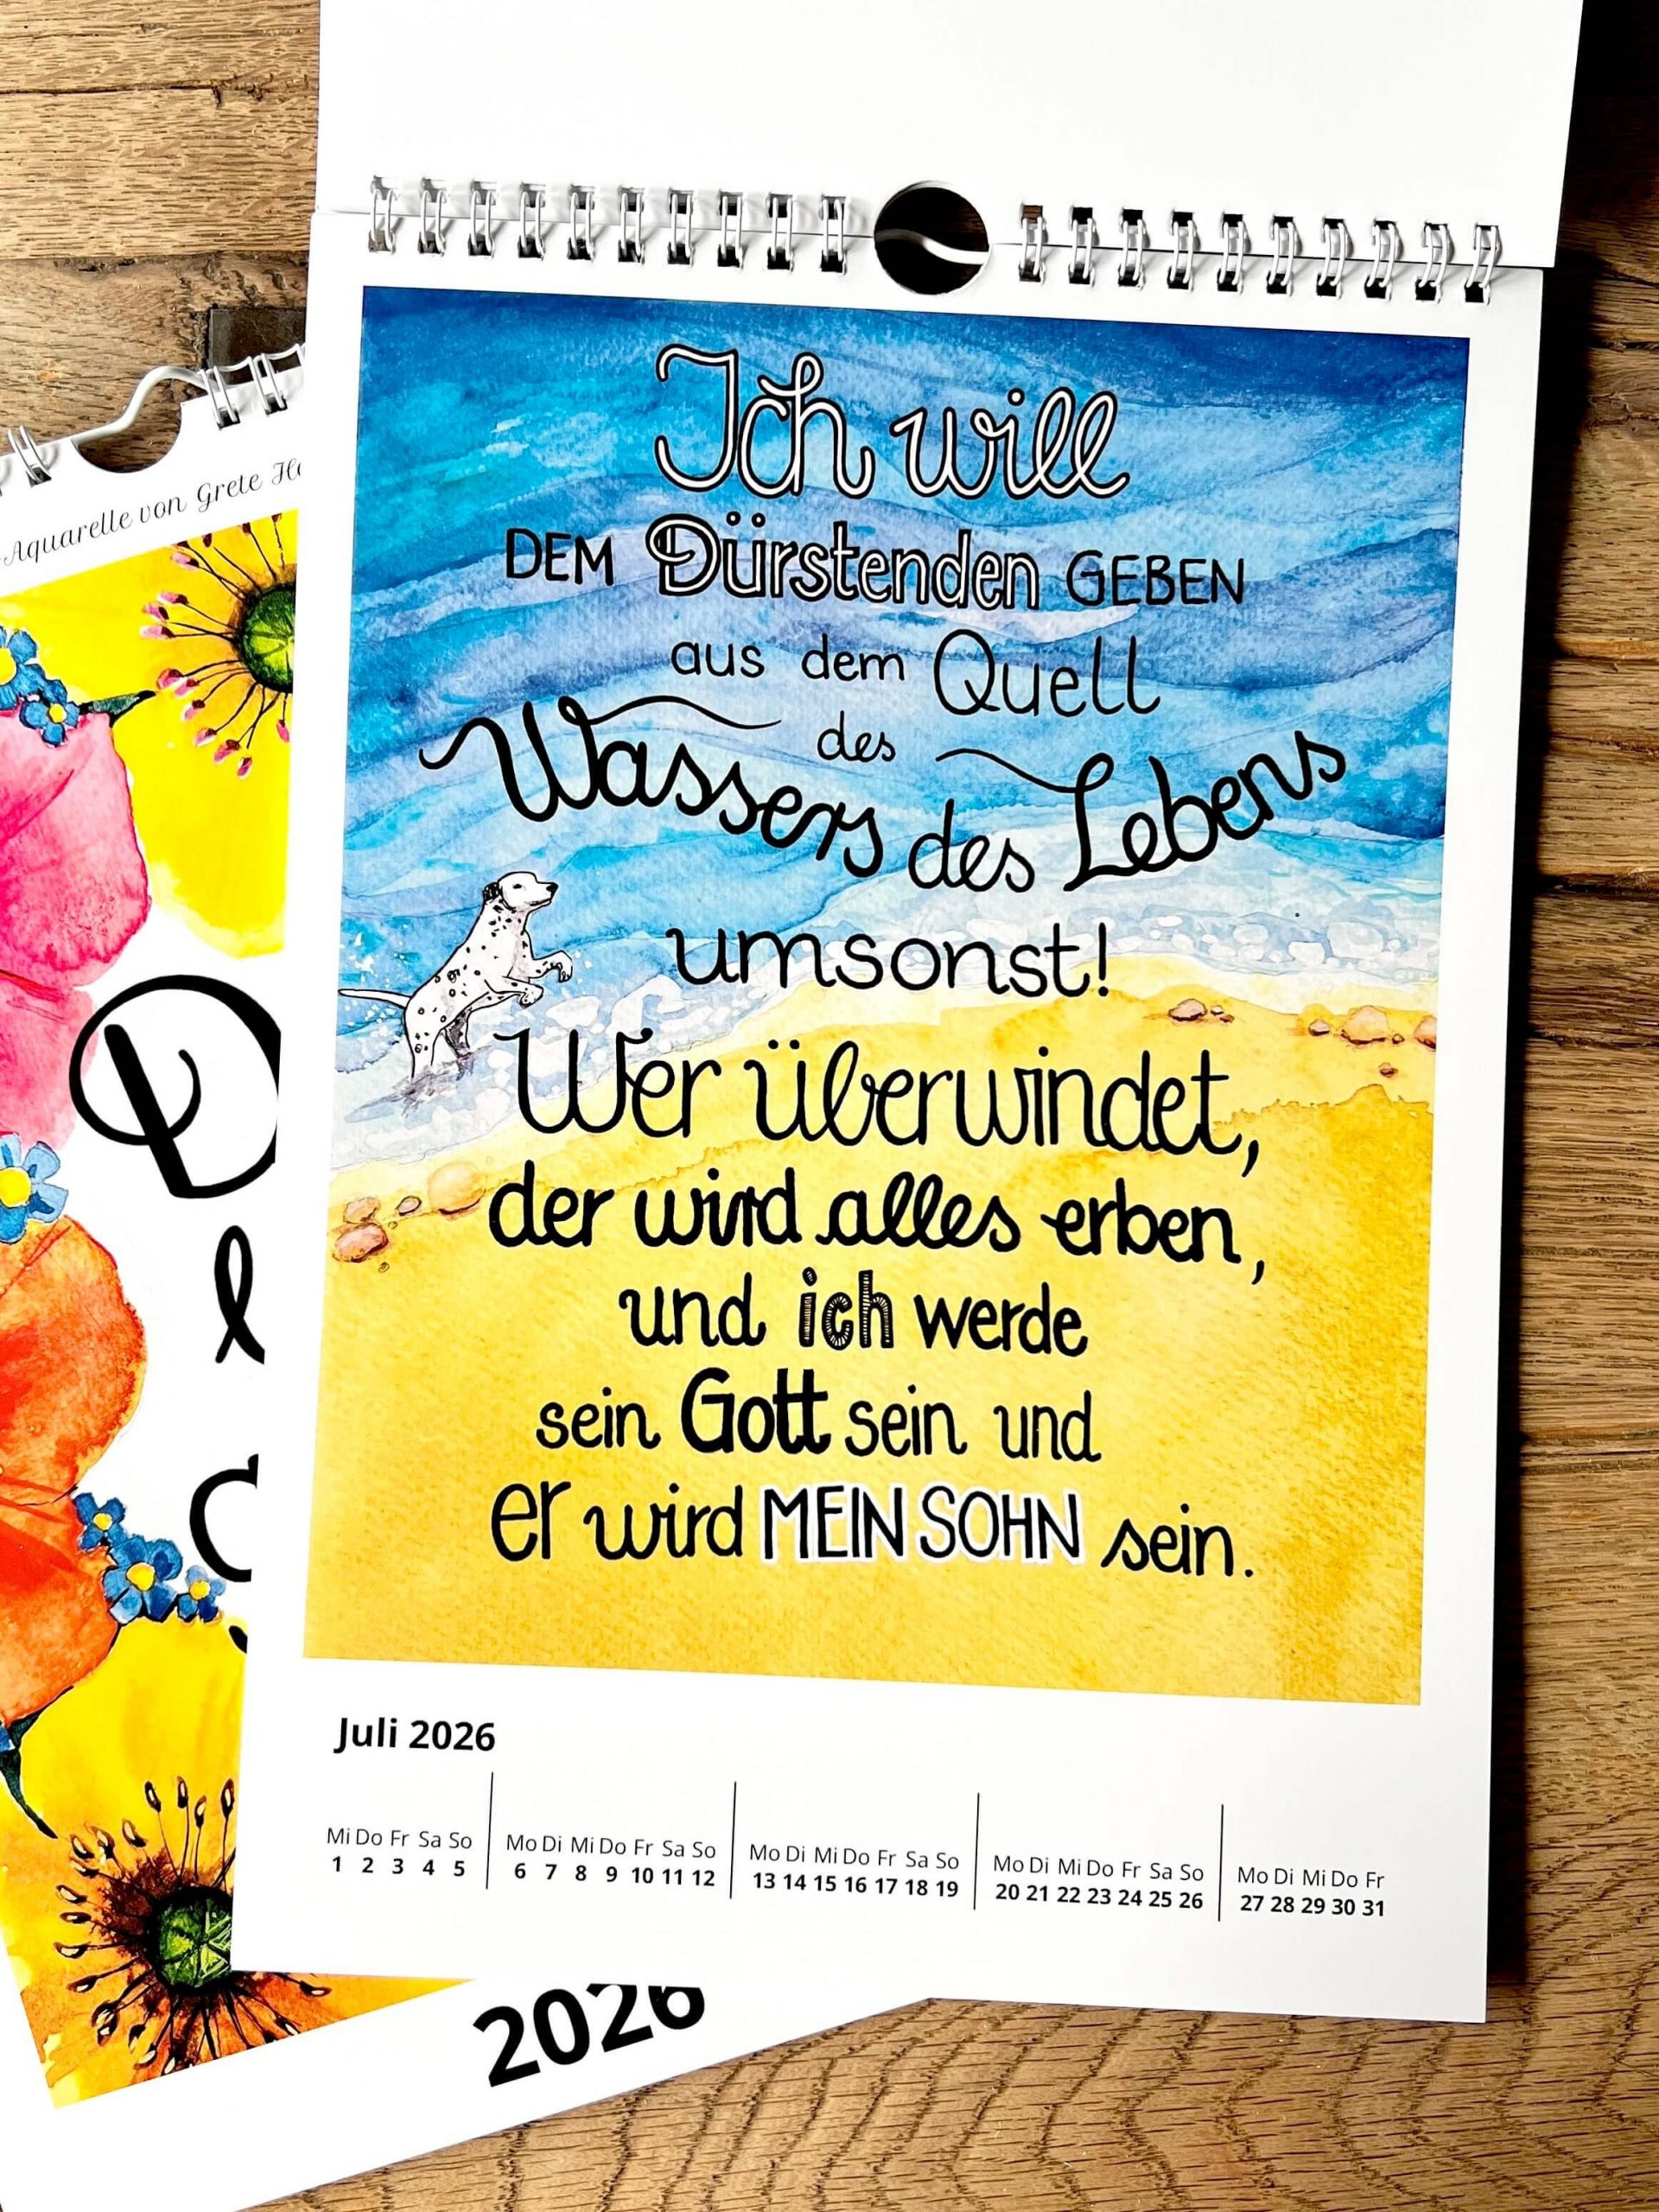 Ich will
DEM Dürstenden GEBEN
aus dem Quell
des
Wassers des Lebens
umsonst!
Wer überwindet,
der wird alles erben,
und ich werde
sein Gott sein und
er wird MEIN SOHN sein.
Juli 2026
Mi Do Fr Sa So Mo Di Mi Do Fr Sa So Mo Di Mi Do Fr Sa So Mo Di Mi Do Fr Sa So Mo Di Mi Do Fr
1 2 3 4 5 6 7 8 9 10 11 12 13 14 15 16 17 18 19 20 21 22 23 24 25 26 27 28 29 30 31
Aquarelle von Grete
2026